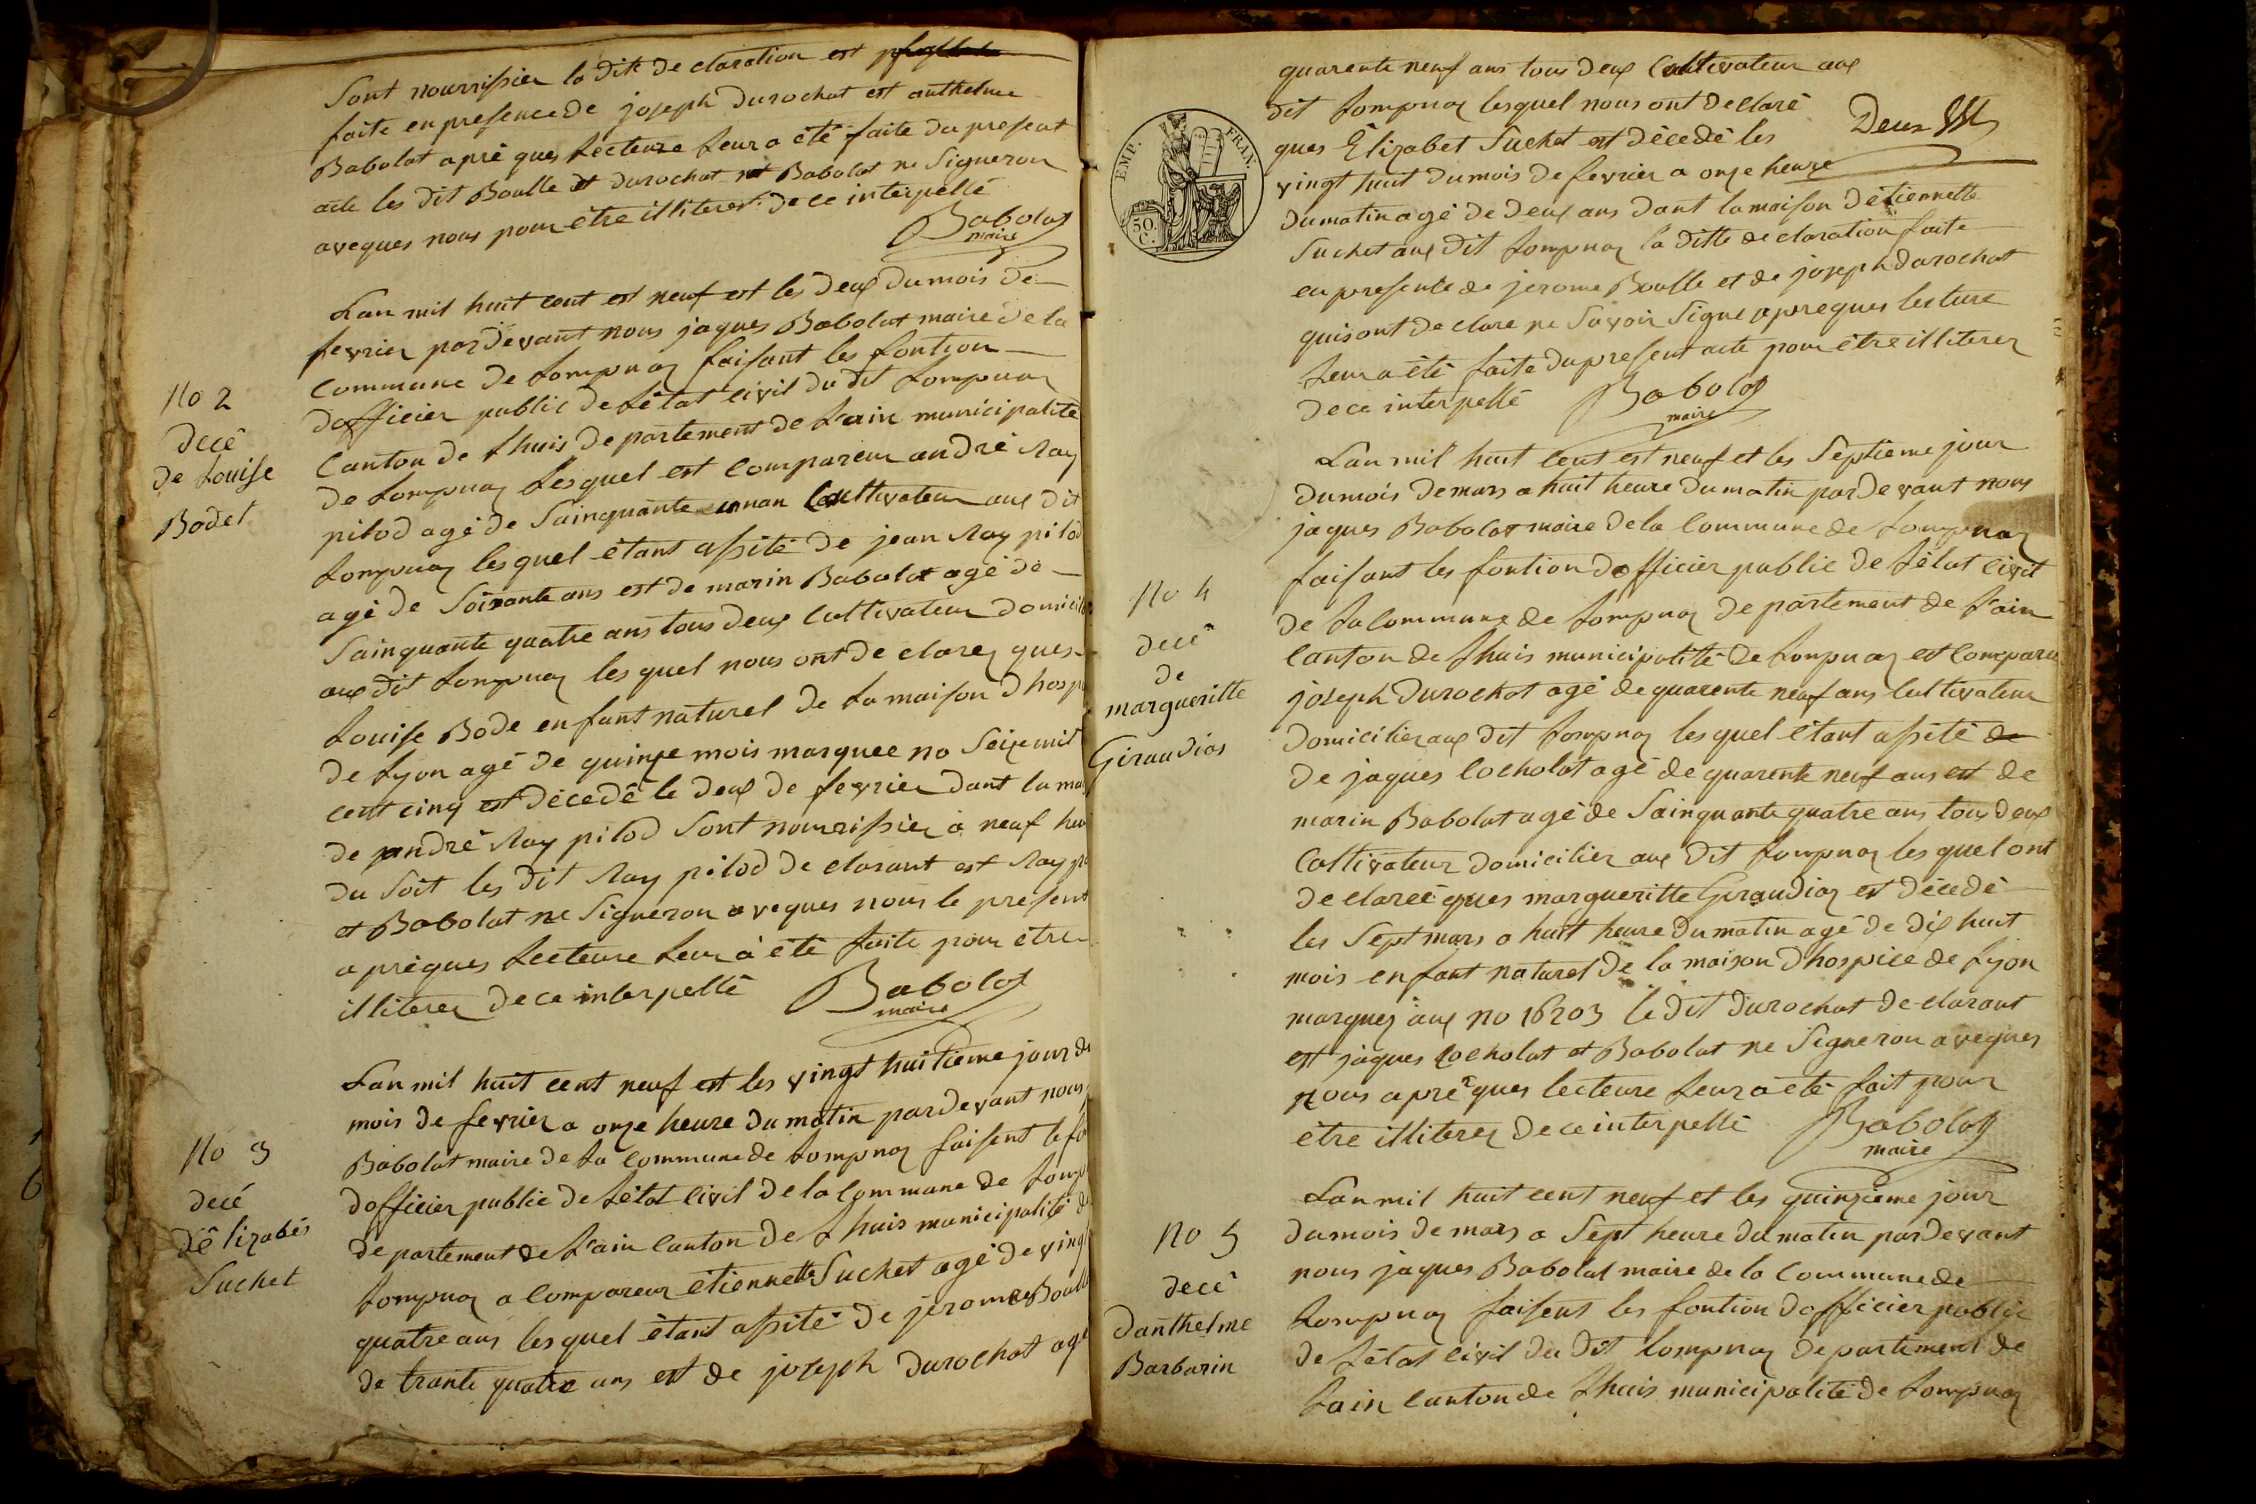 Sont nourrissier la dite de claration est
faite en presence de joseph durochat est anthelme
Babolat aprè ques Lecteure Leur a été faite du present
acte les dit Boulle et durochat et Babolat ne Signeron
aveques nous pour être illiterer de ce interpellé
Babolat
maire
Lan mil huit cent est neuf est les deux du mois de
fevrier pardevant nous jaques Babolat maire de la
commune de Lompnaz faisant les fontion
dofficier public de Létat civil du dit Lompnaz
Canton de Lhuis departement de Lain municipalité
de Lompnaz Lesquel est compareur andré Ray
pilod agé de Sainquante un an Cultivateur aux dit
Lompnaz lesquel étant assité de jean Ray pilod
agé de Soixante ans est de marin Babolat agé de
Sainquante quatre ans tous deux Cultivateur domicile
aux dit Lompnaz les quel nous ont de clarez ques
Louise Bode enfant naturel de La maison dhosp
de Lyon agé de quinze mois marquee no Seize mil
cent cinq est décedé le deux de fevrier dant la mai
de andré Ray pilod Sont nourrissier à neuf heu
du Soit les dit Ray pilod de clarant est Ray pi
et Babolat ne Signeron aveques nous le present
aprèques Lecteure Leur à été faite pour être
illiterez de ce interpellé
Babolat
maire
No 2
decé
de Louise
Bodet
Lan mil huit cent neuf est les vingt huitieme jour du
mois de fevrier a onze heure du matin pardevant nous
Babolat maire de La commune de Lompnaz faisent le fo
dofficier public de Létat civil de la commune de Lomp
departement de Lain Canton de Lhuis municipalité de
Lompnaz a compareur étiennette Suchet agé de vingt
quatre ans lesquel étant assité de jerome Boulle
de trante quatre ans est de joseph durochat agé
No 3
decé
délizabés
Suchet
quarente neuf ans tous deux Cultivateur aux
dit Lompnaz lesquel nous ont declaré
ques Élizabet Suchet est décedé les
Deux
vingt huit du mois de fevrier a onze heure
du matin agé de deux ans dant la maison détiennette
Suchet aux dit Lompnaz la ditte declaration faite
en presente de jerome Boulle et de joseph durochat
quisont declare ne Savoir Signe apreques lecture
Leur a été faite du present acte pour être illiterez
de ce interpellé
Babolat
maire
EMP. FRAN.
50.
C.
Lan mil huit cent est neuf et les Septieme jour
du mois de mars a huit heure du matin pardevant nous
jaques Babolat maire de la Commune de Lompnaz
faisant les fontion dofficier public de Létat civil
de La commune de Lompnaz departement de Lain
Canton de Lhuis municipalité de Lompnaz est Comparu
joseph durochat agé de quarente neuf ans Cultivateur
Domicilier aux dit Lompnaz lesquel étant assité de
de jaques Cocholat agé de quarente neuf ans est de
marin Babolat agé de Sainquante quatre ans tous deux
Cultivateur domicilier aux dit Lompnaz lesquel ont
de clareé ques margueritte Giraudiaz est décedé
les Sept mars a huit heure du matin agé de dix huit
mois enfant naturel de la maison dhospice de Lyon
marquez aux no 16203 le dit durochat de clarant
est jaques Cocholat et Babolat ne Signeron aveques
nous aprèques lecteure Leur à été fait pour
être illiterez de ce interpellé
Babolat
maire
No 4
decé
de
margueritte
Giraudias
Lan mil huit cent neuf et les quinzieme jour
du mois de mars a Sept heure du matin pardevant
nous jaques Babolat maire de la Commune de
Lompnaz faisent les fontion dofficier public
de Létat civil du dit Lompnaz departement de
Lain Canton de Lhuis municipalité de Lompnaz
No 5
decé
danthelme
Barbarin